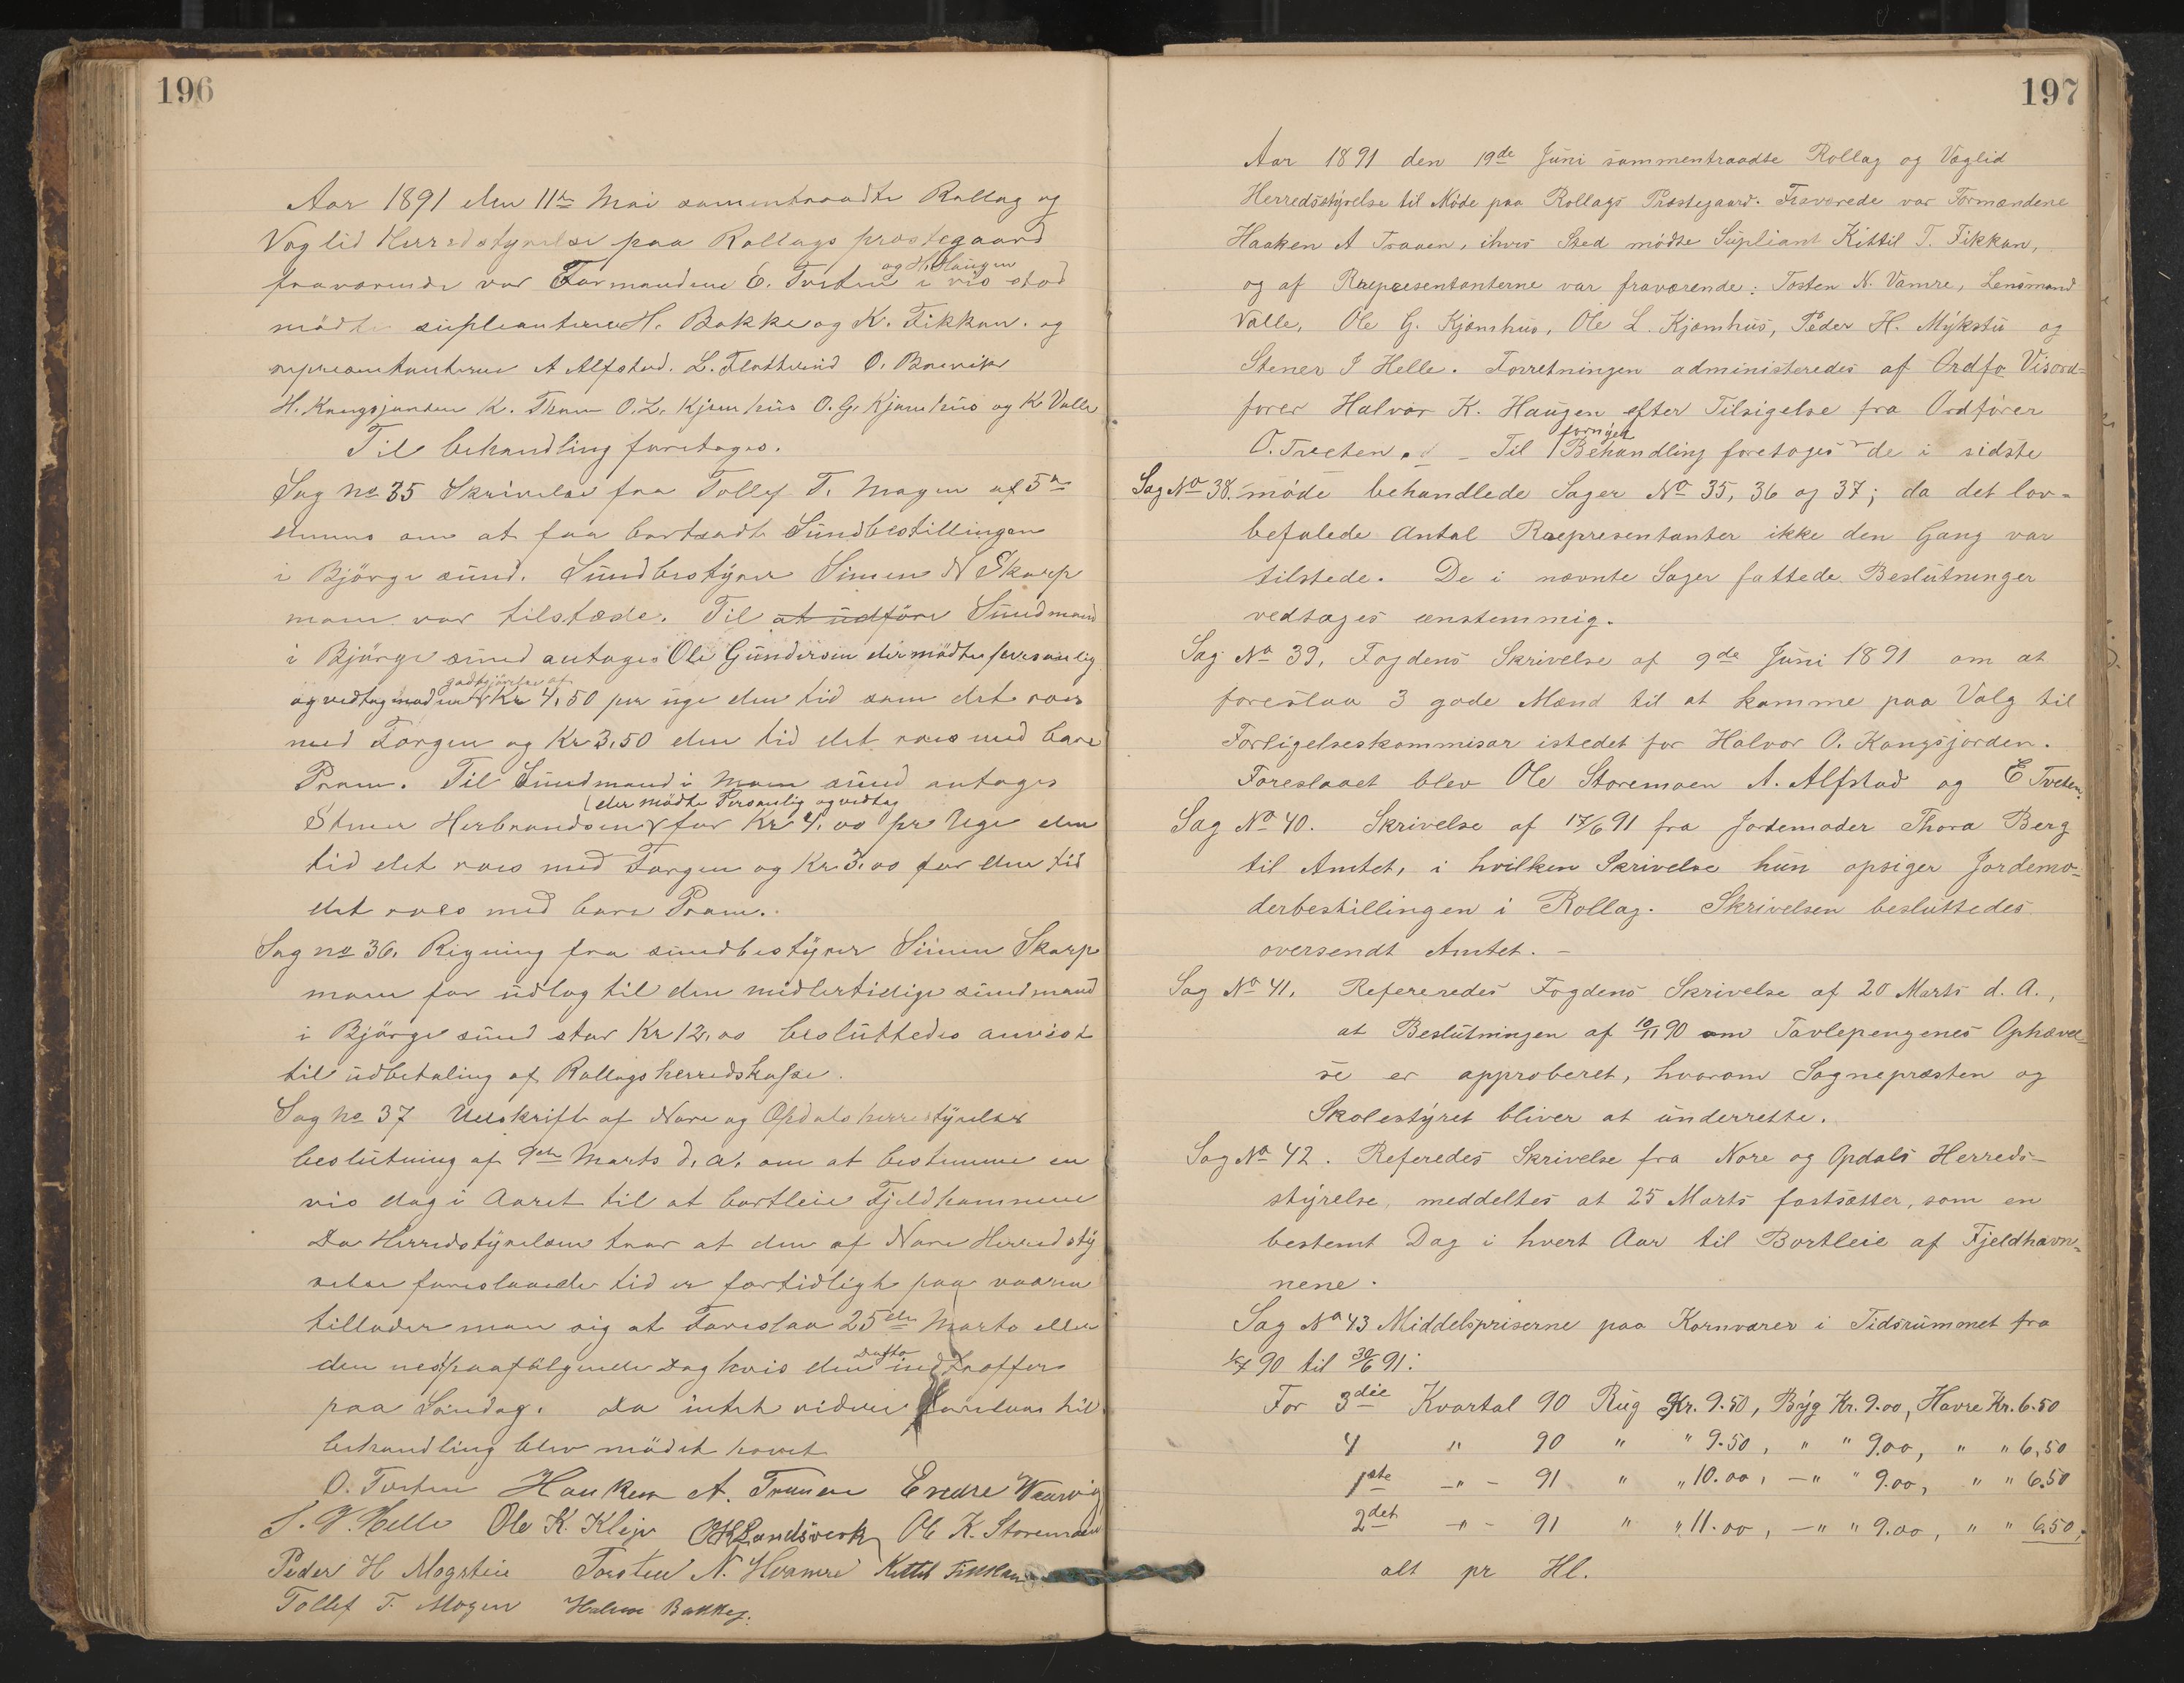 196
Aar 1891 den 11te Mai sammentraadte Rollag og
Væglid Herredstyrelse paa Rollags prestegaard
fraværende var Formændene E. Tveten og H. Haugen i vis sted
mødte supleanterne H. Bakke og K. Fikkan. og
representanterne A Alfstad. L. Flatterud O. Brævik
H. Kongsjorden K. Traaen O. L. Kjømhus O. G. Kjømhus og K Valle
Til behandling foretoges.
Sag No 35 Skrivelse fra Tollef T. Mogen af 5te
dennes om at faa bortsadt Sundbestillingen
i Bjørge sund. Sundbestyrer Simen N Skarp
moen var tilstæde. Til at udføre Sundmand
i Bjørge sund antoges Ole Gundersen der mødte personlig
og vedtog mod en godtgjørelse af Kr 4,50 per uge den tid som det roes
med Færgen og Kr 3,50 den tid det roes med bare
Pram. Til Sundmand i Moen sund antoges
Stener Herbrandsen der mødte Personlig og vedtog for Kr 4,00 pr Uge den
tid det roes med Færgen og Kr. 3,00 for den tid
det roes med bare Pram.
Sag no 36. Rigning fra sundbestyrer Simen Skarp
moen for udlæg til den midlertidige sundmand
i Bjørge sund stor Kr 12,00 besluttedes anvist
til udbetaling af Rollags herredskasse.
Sag No 37 Udskrift af Nore og Opdals herredstyrelses
beslutning af 9de Marts d. a. om at bestemme en
vis dag i Aaret til at bortleie Fjeldhavnene
Da Herredstyrelsen tror at den af Nore Herredsty
relse foreslaaede tid er fortidligt paa vaaren
tillader man sig at Foreslaa 25de Marts eller
den nestpaafølgende Dag hvis den Datto indtræffer
paa Søndag. Da intet videre forelaa til
behandling blev mødet hævet
O. Tveten Haaken A. Traaen Endre Wraavig
S. J. Helle Ole K. Kleiv OH Landsverk Ole K. Storemoen
Peder H Mogstue Torsten N. Hvamre Kittil Fikkan
Tollef T. Mogen Halvor Bakke.
197
Aar 1891 den 19de Juni sammentraadte Rollag og Væglid
Herredsstyrelse til Møde paa Rollags Præstegaard. Fraværede var Formændene
Haaken A Traaen, ihvis Sted mødte Supliant Kittil T. Fikkan,
og af Ræpresentanterne var fraværende: Tosten N. Vamre, Lensmand
Valle, Ole G. Kjømhus, Ole L. Kjømhus, Peder H. Mykstu og
Stener J Helle. Forretningen administeredes af Ordfø Visord-
fører Halvor K. Haugen efter Tilsigelse fra Ordfører
O. Tveten. – Til fornyet Behandling foretoges de i sidste
Sag No 38. møde behandlede Sager No 35, 36 og 37; da det lov-
befalede Antal Ræpresentanter ikke den Gang var
tilstede. De i nævnte Sager fattede Beslutninger
vedtages enstemmig.
Sag No 39. Fogdens Skrivelse af 9de Juni 1891 om at
foreslaa 3 gode Mænd til at komme paa Valg til
Forligelseskommisær istedet for Halvor O. Kongsjorden.
Foreslaaet blev Ole Storemoen A. Alfstad og E Tveten.
Sag No 40. Skrivelse af 17/6 91 fra Jordemoder Thora Berg
til Amtet, i hvilken Skrivelse hun opsiger Jordemo-
derbestillingen i Rollag. Skrivelsen besluttedes
oversendt Amtet. –
Sag No 41. Refereredes Fogdens Skrivelse af 20 Marts d. A.,
at Beslutningen af 10/11 90 om Tavlepengenes Ophævel-
se er approberet, hvorom Sognepræsten og
Skolestyret bliver at underrette.
Sag No 42. Referedes Skrivelse fra Nore og Opdals Herreds-
styrelse, meddeltes at 25 Marts fastsætter, som en
bestemt Dag i hvert Aar til Bortleie af Fjeldhavn-
nene.
Sag No 43 Middelspriserne paa Kornvarer i Tidsrummet fra
1/7 90 til 30/6 91:
For 3die Kvartal 90 Rug Kr. 9.50, Byg Kr. 9.00, Havre Kr. 6.50
4 " 90 " " 9.50, " " 9.00, " " 6,50
1ste –"– 91 " " 10.00, –" " 9.00, " " 6.50
2det –"– 91 " " 11.00, –" " 9.00, " " 6.50,
alt pr Hl.